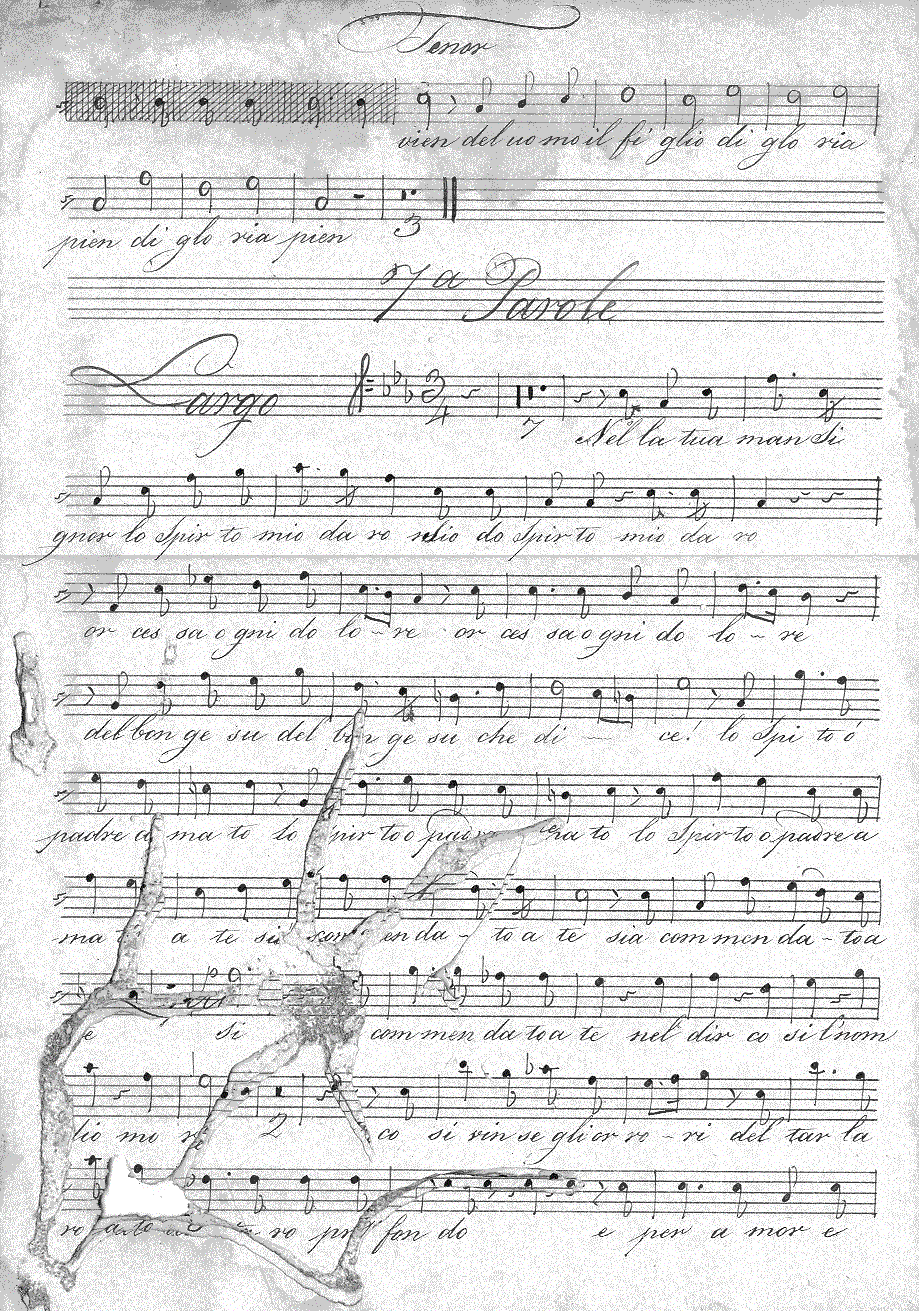 Tenor
vien del uo mo il fi glio di glo ria
pien di glo ria pien 3
7a Parole
Largo 3 4 7 Nel la tua man Si
gnor lo Spir to mio da ro mio do Spir to mio da ro
or ces sa o gni do lo - re or ces sa o gni do lo - re
del bon ge su del bon ge su che di ce! lo Spi to o
padre a ma to lo Spir to o padre ma to lo Spir to o padre a
ma a te si com en da - to a te sia com men da - to a
e si com men da to a te nel dir co si l'nom
lio mo 2 co si vin se gli or ro - ri del tar la
ro ro pro fon do e per a mor e